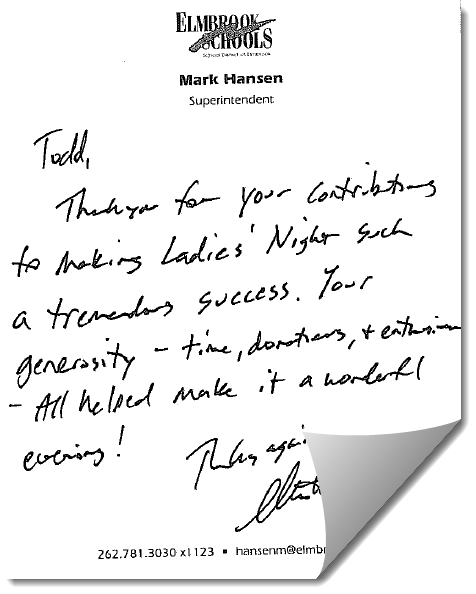 ELMBROOK
SCHOOLS
Mark Hansen
Superintendent
Todd,
Thank you for your contributions
to making Ladies' Night such
a tremendous success. Your
generosity – time, donations, + enthusiasm
– All helped make it a wonderful
evening!
Thanks again
262.781.3030 x1123 ▪ hansenm@elmbr